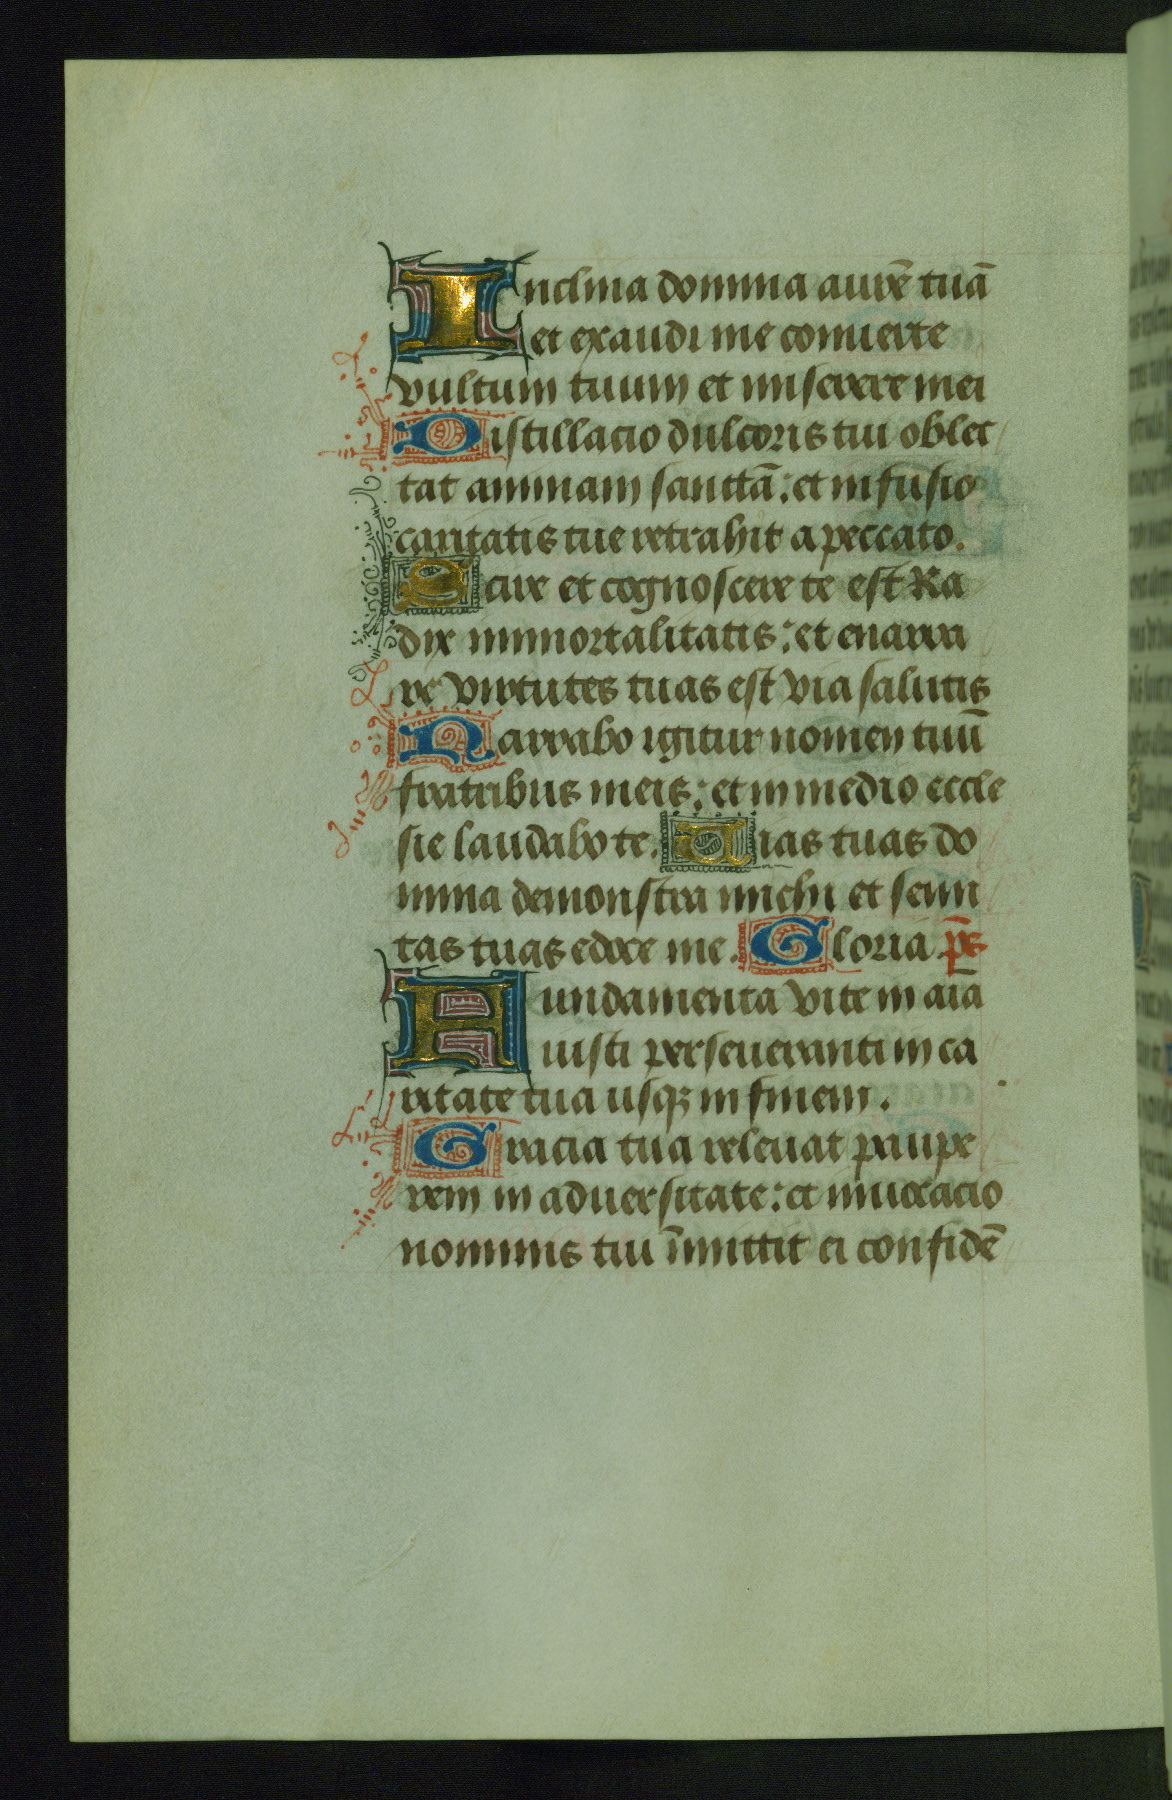 Inclina domina aurē tuā
et exaudi me conuerte
vultum tuum et miserere mei
Distillacio dulcoris tui oblec
tat animam sanctā: et infusio
caritatis tue retrahit a peccato.
Scire et cognoscere te est Ra
dix immortalitatis: et enarra
re virtutes tuas est via salutis
Narrabo igitur nomen tuū
fratribus meis: et in medio eccle
sie laudabo te. Vias tuas do
mina demonstra michi et semi
tas tuas edoce me. Gloria ps
Fundamenta vite in aīa
iusti perseueranti in ca
ritate tua usqꝫ in finem.
Gracia tua releuat paupe
rem in aduersitate: et inuocacio
nominis tui īmittit ei confidē